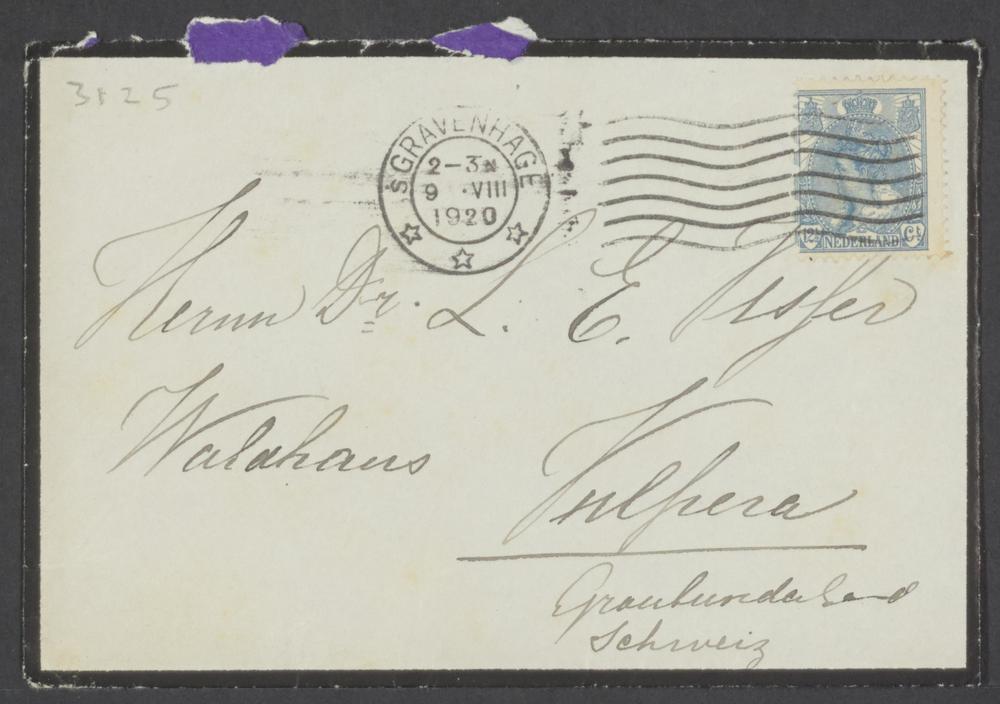 3125
'SGRAVENHAGE
2-3N
9 .VIII
1920
12½ NEDERLAND Ct
Herrn Dr. L. E. Visser
Waldhaus
Vulpera
Graubunderland
Schweiz